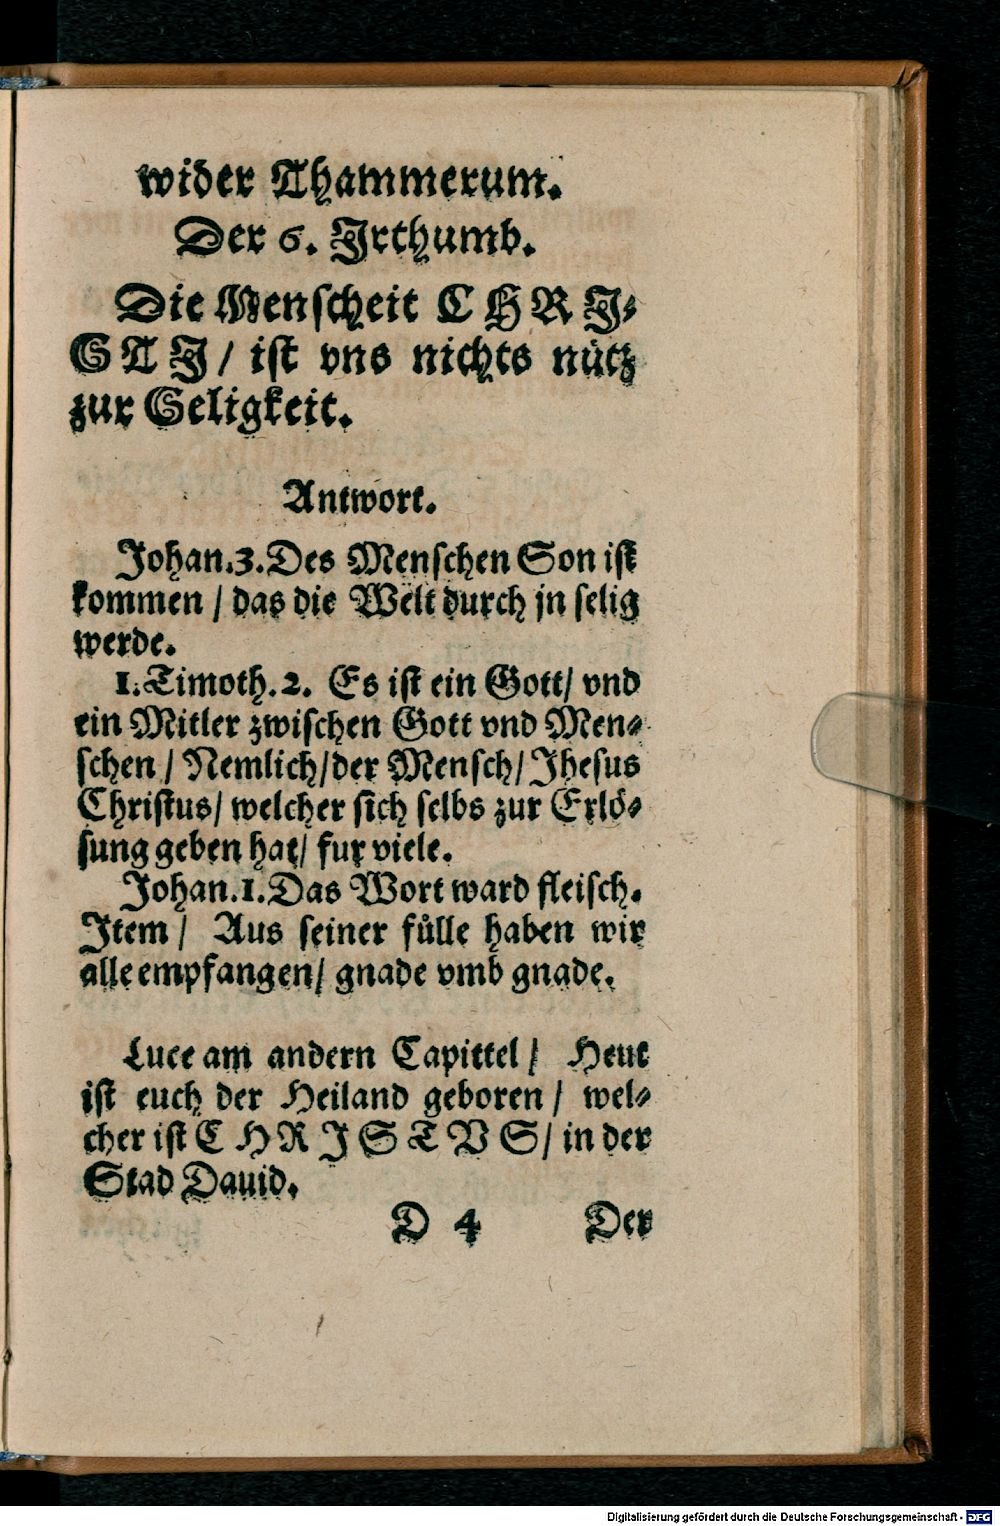 wider Thammerum.
Der 6. Irthumb.
Die Menscheit CHRI-
STI / ist vns nichts nütz
zur Seligkeit.
Antwort.
Johan.3. Des Menschen Son ist
kommen / das die Welt durch jn selig
werde.
1. Timoth. 2. Es ist ein Gott / vnd
ein Mitler zwischen Gott vnd Men-
schen / Nemlich / der Mensch / Jhesus
Christus / welcher sich selbs zur Erlö-
sung geben hat / fur viele.
Johan.1. Das Wort ward fleisch.
Item / Aus seiner fülle haben wir
alle empfangen / gnade vmb gnade.
Luce am andern Capittel / Heut
ist euch der Heiland geboren / wel-
cher ist CHRISTVS / in der
Stad Dauid.
D 4 Der
Digitalisierung gefördert durch die Deutsche Forschungsgemeinschaft - DFG